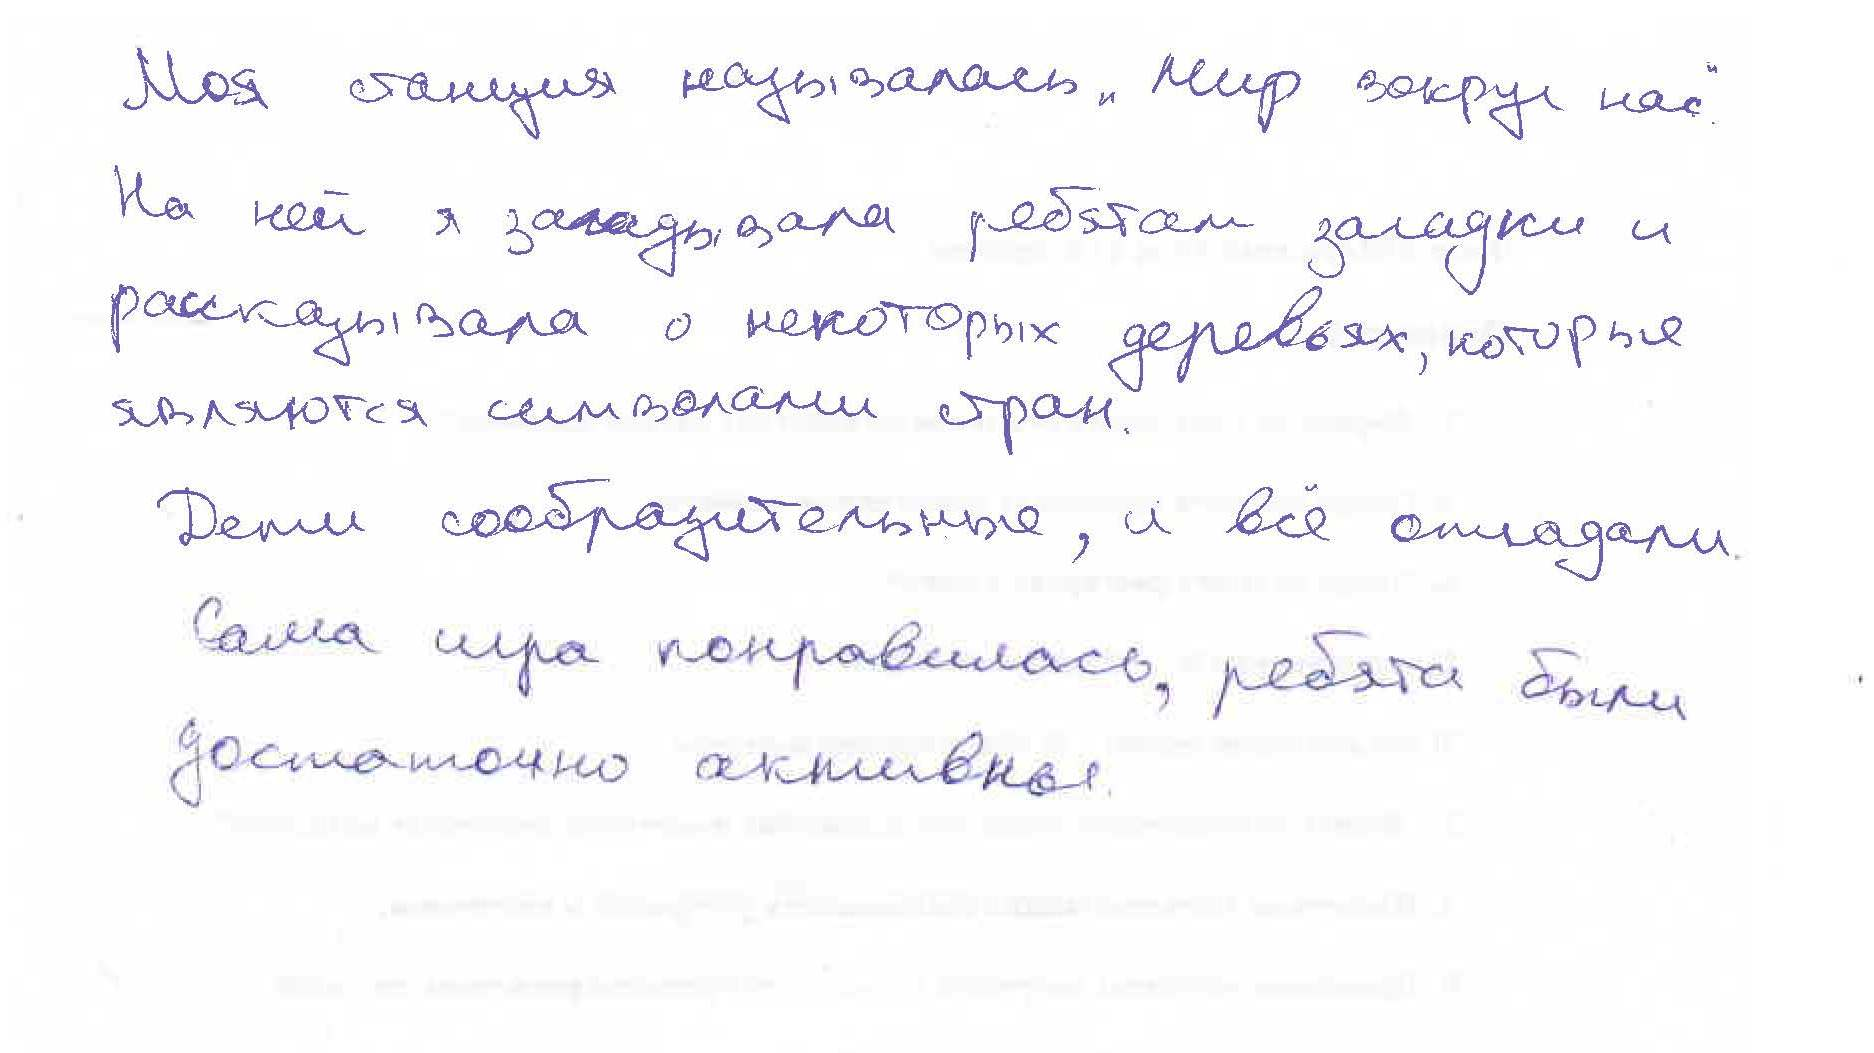 Моя станция называлась „Мир вокруг нас".
На ней я загадывала ребятам загадки и
рассказывала о некоторых деревьях, которые
являются символами стран.
Дети сообразительные, и всё отгадали.
Сама игра понравилась, ребята были
достаточно активны.